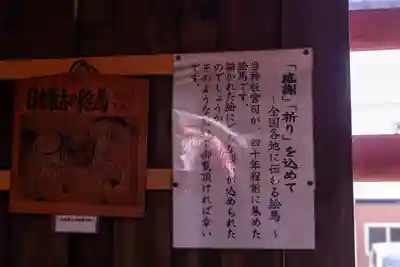 「感謝」「祈り」を込めて
~全国各地に伝わる絵馬~
当神社宮司が、四十年程前に集めた
絵馬です。
描かれた絵にどんな願いが込められた
のでしょうか。
そのような想いで御覧頂ければ幸い
です。
日本最古の絵馬